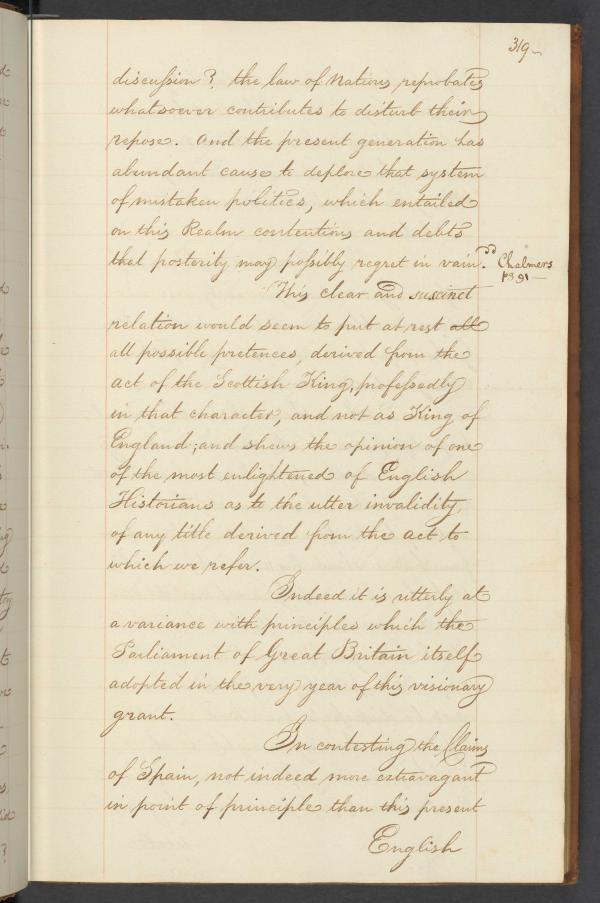 319-
discussion? the law of Nations, reprobates
whatsoever contributes to disturb their
repose. And the present generation has
abundant cause to deplore that system
of mistaken politics, which entailed
on this Realm contentions and debts
that posterity may possibly regret in vain."
Chalmers
pg. 91-
This clear and succinct
relation would seem to put at rest all
all possible pretences, derived from the
act of the Scottish King, professedly
in that character, and not as King of
England; and shews the opinion of one
of the most enlightened of English
Historians as to the utter invalidity,
of any title derived from the act to
which we refer.
Indeed it is utterly at
a variance with principles which the
Parliament of Great Britain itself
adopted in the very year of this visionary
grant.
In contesting the Claims
of Spain, not indeed more extravagant
in point of principle than this present
English